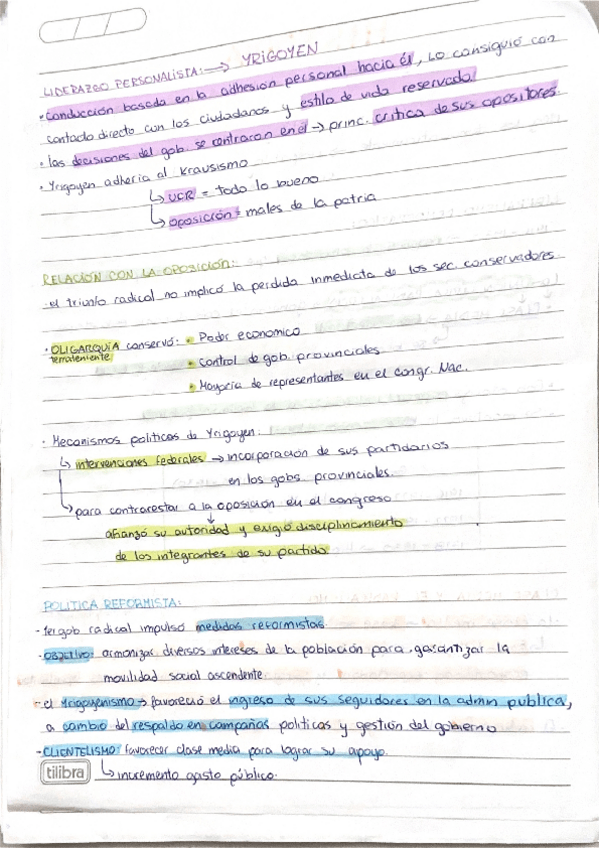 LIDERAZGO PERSONALISTA: → YRIGOYEN
• Conducción basada en la adhesión personal hacia él, lo consiguió con
contacto directo con los ciudadanos y estilo de vida reservado
• las decisiones del gob se centraron en él → princ. crítica de sus opositores.
• Yrigoyen adhería al Krausismo
↳ UCR = todo lo bueno
↳ oposición = males de la patria
RELACIÓN CON LA OPOSICIÓN:
• el triunfo radical no implicó la perdida inmediata de los sec. conservadores
• OLIGARQUÍA conservó: • Poder economico
terrateniente
• Control de gob. provinciales
• Mayoría de representantes en el congr. Nac.
• Mecanismos políticos de Yrigoyen.
↳ intervenciones federales → incorporación de sus partidarios
en los gobs. provinciales.
↳ para contrarestar a la oposición en el congreso
↓
afianzó su autoridad y exigió disciplinamiento
de los integrantes de su partido.
POLITICA REFORMISTA:
- 1er gob radical impulsó medidas reformistas.
- OBJETIVO: armonizar diversos intereses de la población para garantizar la
movilidad social ascendente.
- el Yrigoyenismo → favoreció el ingreso de sus seguidores en la admin publica,
a cambio del respaldo en campañas politicas y gestión del gobierno
- CLIENTELISMO: favorecer clase media para lograr su apoyo.
↳ incremento gasto público.
tilibra